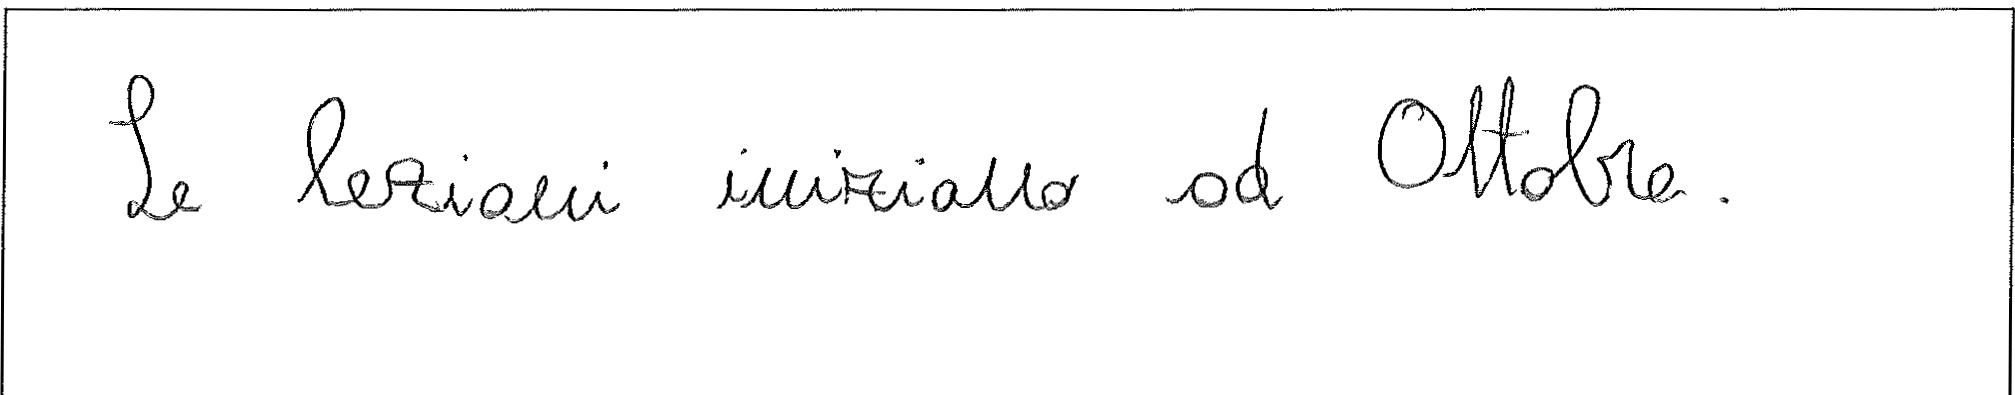 Le lezioni iniziano ad Ottobre.